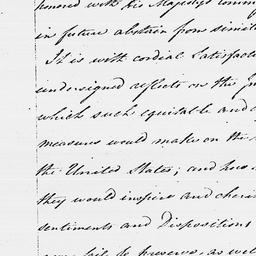 honored with his Majesty's comm
in future abstain from simil
It is with cordial Satisfact
undersigned reflects on the
which such equitable and
measures would make on the
the United States; and how
they would inspire and cheri
sentiments and Dispositions
fail to preserve, as wel